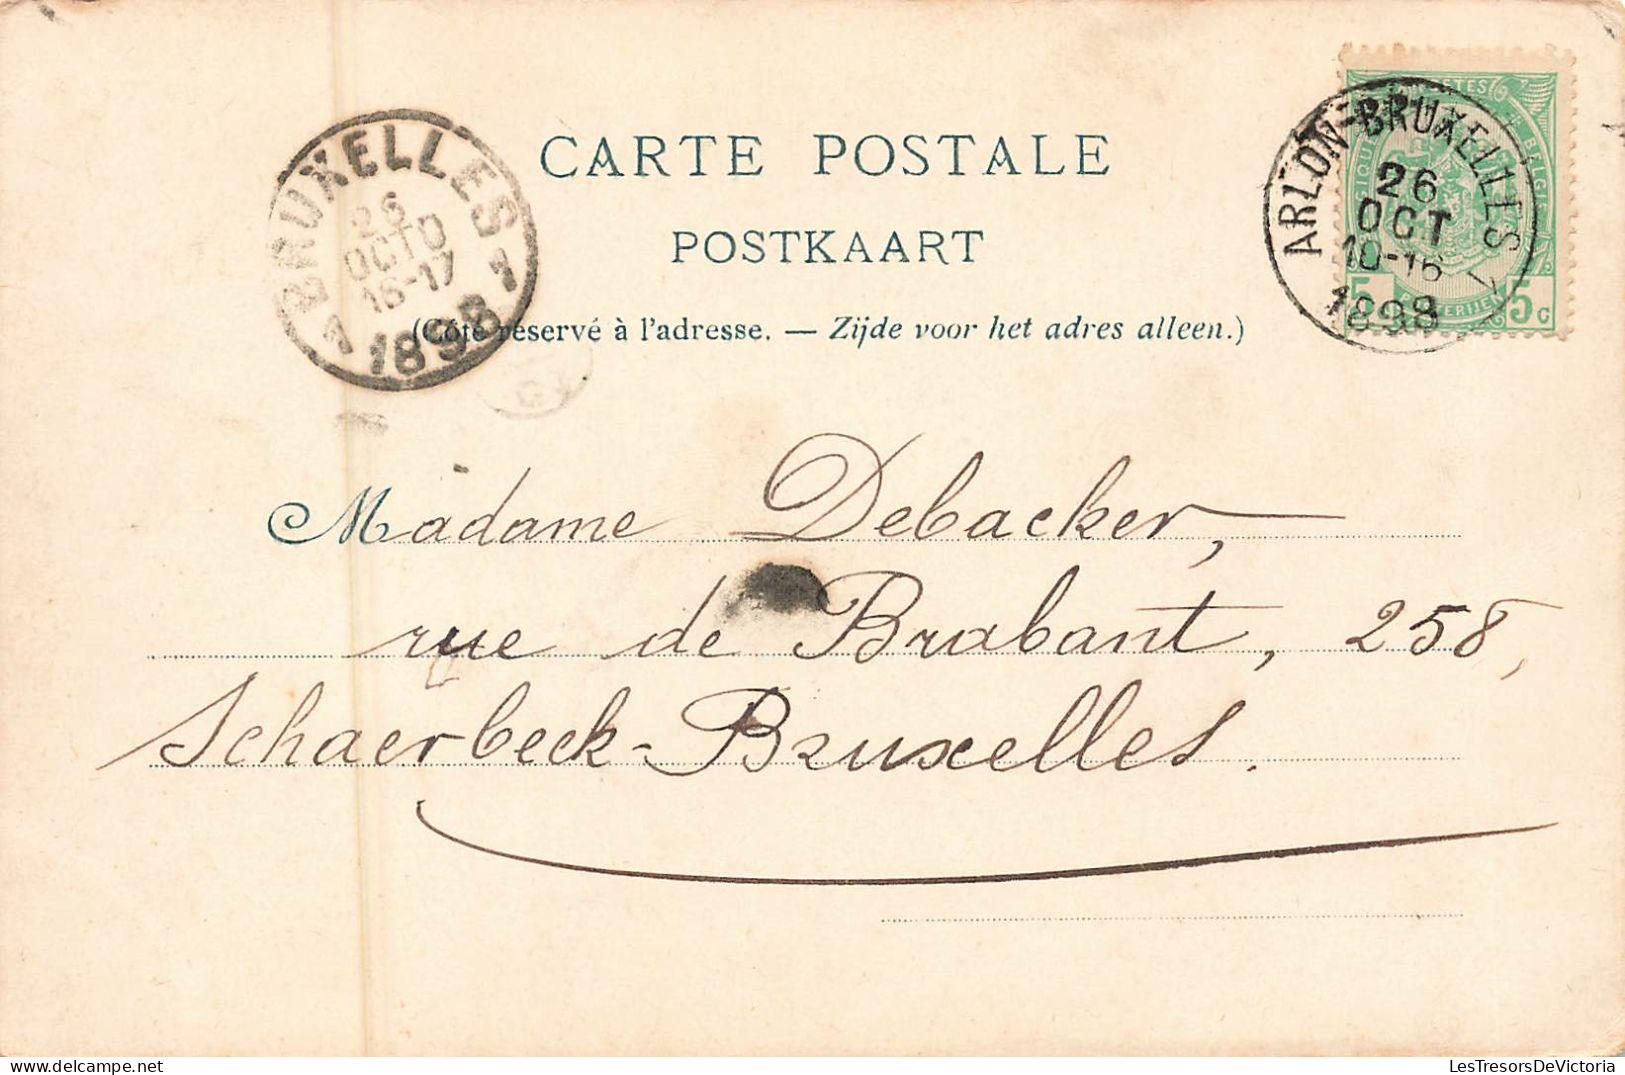 CARTE POSTALE
POSTKAART
(Côté réservé à l'adresse. — Zijde voor het adres alleen.)
BRUXELLES
26
OCTO
16-17
1898
ARLON-BRUXELLES
26
OCT
10-16
1898
5 5c
Madame Debacker,
rue de Brabant, 258,
Schaerbeek-Bruxelles.
LesTresorsDeVictoria